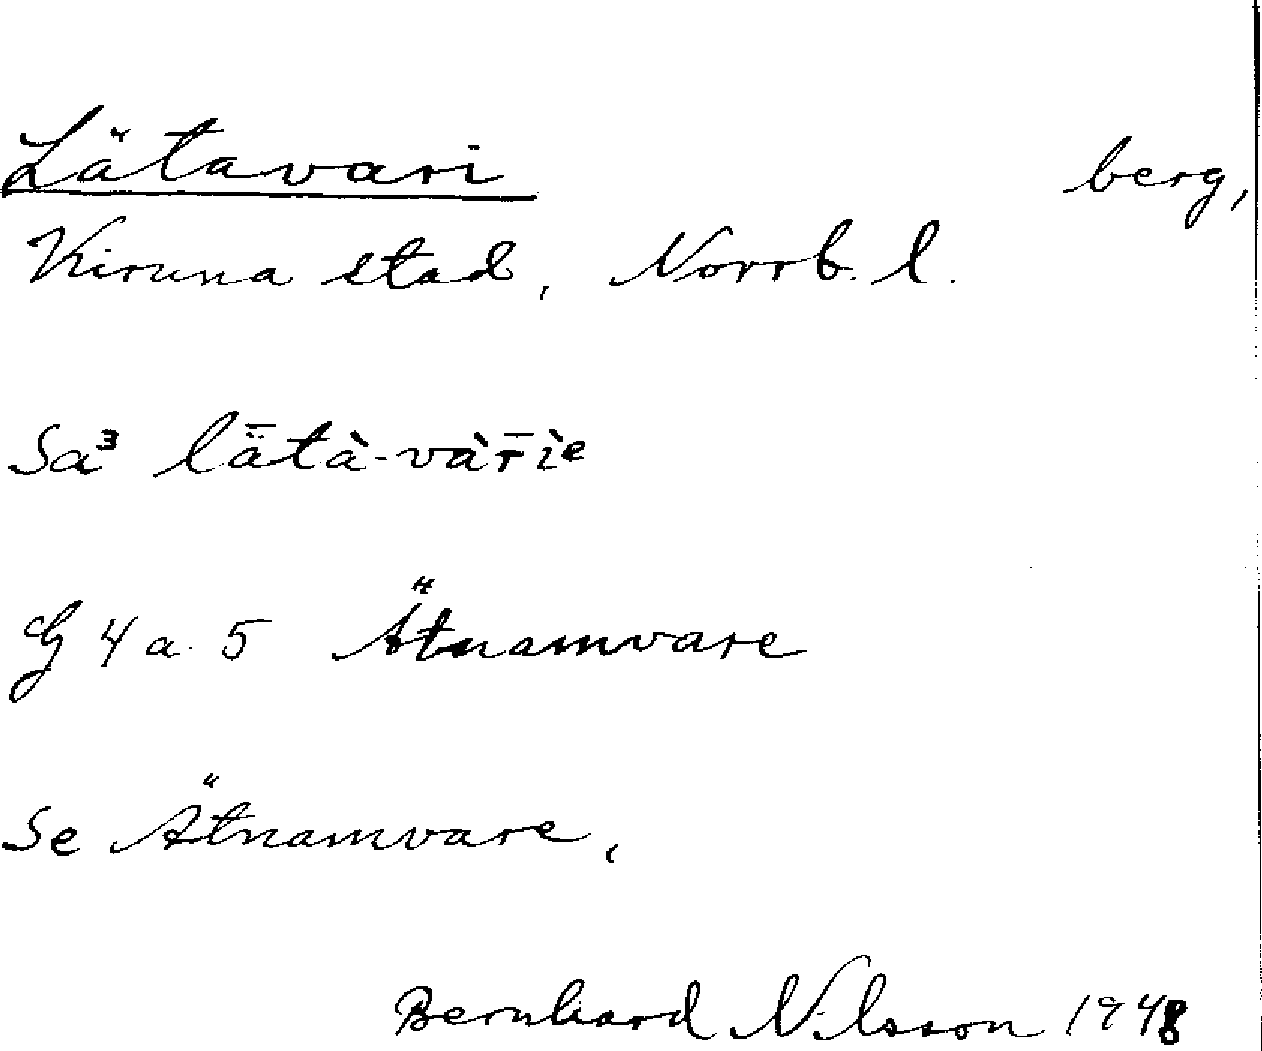 Lätavari berg,
Kiruna stad, Norrb. l.
Sa³ lǟtà-vàr̄ìe
G 4 a. 5 Ätnamvare
Se Ätnamvare,
Bernhard Nilsson 1948